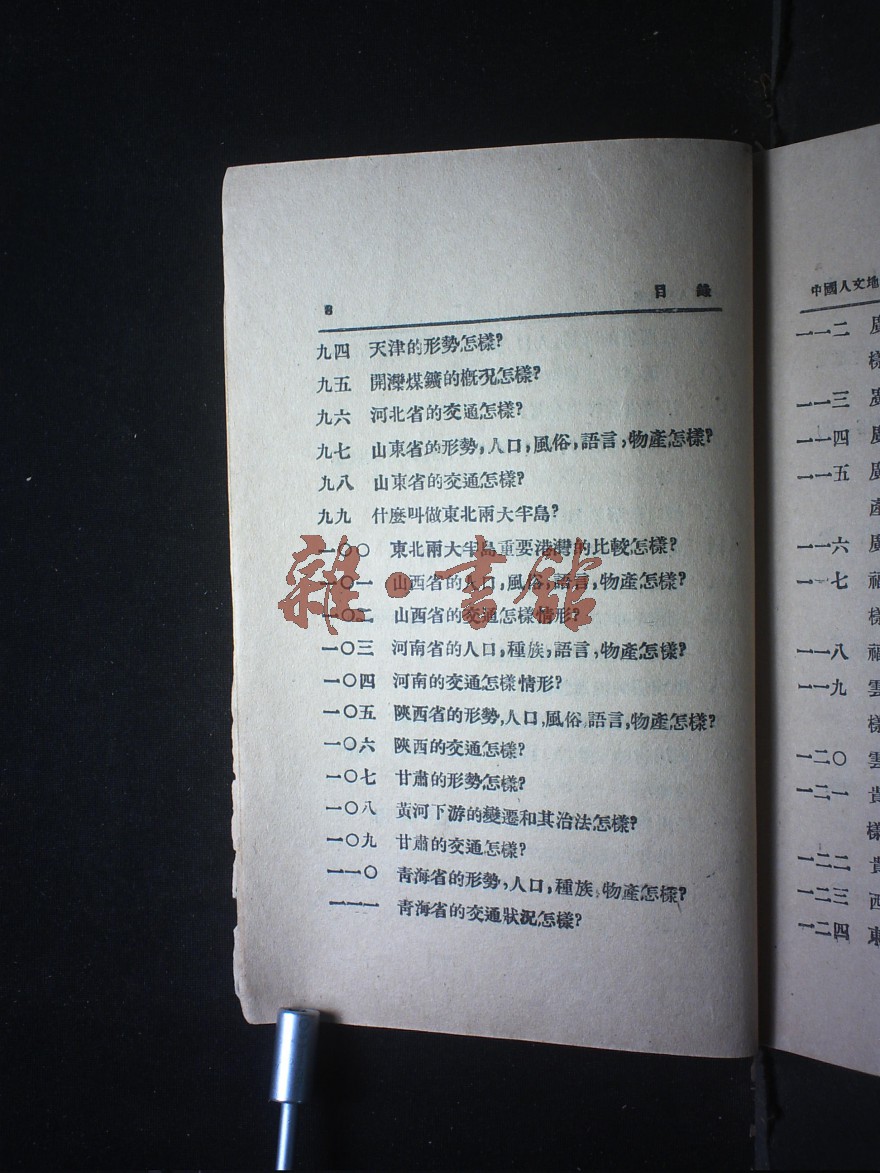 8 目錄
九四 天津的形勢怎樣?
九五 開灤煤鑛的概况怎樣?
九六 河北省的交通怎樣?
九七 山東省的形勢,人口,風俗,語言,物產怎樣?
九八 山東省的交通怎樣?
九九 什麼叫做東北兩大半島?
一〇〇 東北兩大半島重要港灣的比較怎樣?
一〇一 山西省的人口,風俗,語言,物產怎樣?
一〇二 山西省的交通怎樣情形?
一〇三 河南省的人口,種族,語言,物產怎樣?
一〇四 河南的交通怎樣情形?
一〇五 陝西省的形勢,人口,風俗,語言,物產怎樣?
一〇六 陝西的交通怎樣?
一〇七 甘肅的形勢怎樣?
一〇八 黃河下游的變遷和其治法怎樣?
一〇九 甘肅的交通怎樣?
一一〇 靑海省的形勢,人口,種族,物產怎樣?
一一一 靑海省的交通狀況怎樣?
雜·書館
中國人文地
一一二 廣
樣
一一三 廣
一一四 廣
一一五 廣
產
一一六 廣
一一七 福
樣
一一八 福
一一九 雲
樣
一二〇 雲
一二一 貴
樣
一二二 貴
一二三 西
一二四 東